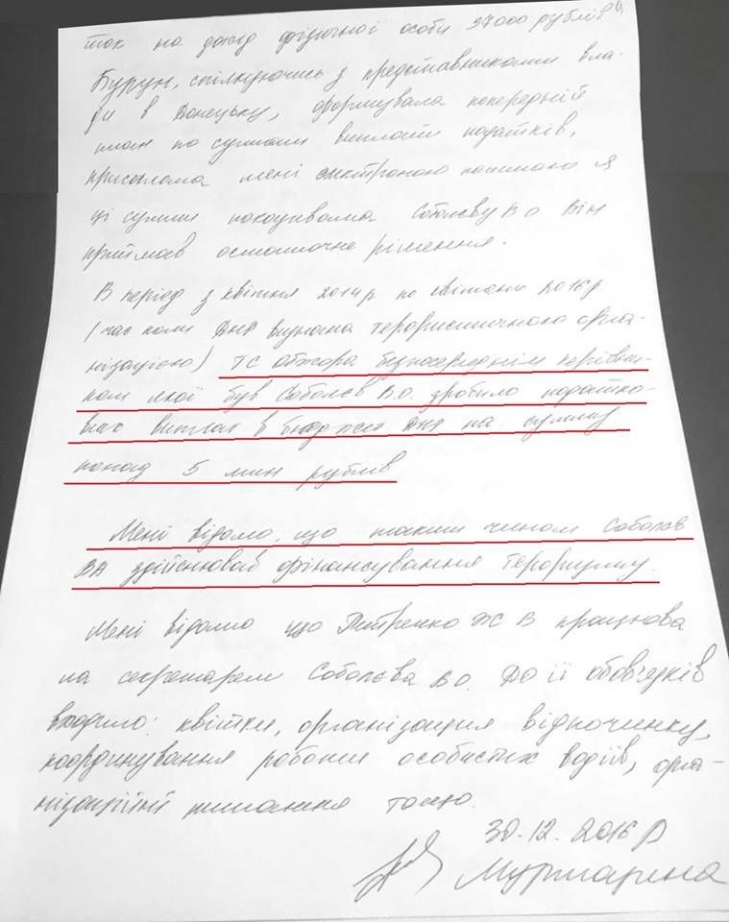 ток на дохід фізичної особи 37000 рублів
Бурун, спілкуючись з представниками вла-
ди в Донецьку, формувала попередній
план по сумам виплати податків,
присилала мені електроною поштою я
ці суми показувала Соболєву В О Він
приймав остаточне рішення.
В період з квітня 2014р по квітень 2016р
(час коли ДНР визнана терористичною орга-
нізацією) ТС Обжора безпосереднім керівни-
ком якої був Соболєв В.О. зробило податко-
вих виплат в бюджет ДНР на сумму
понад 5 млн рублів
Мені відомо, що таким чином Соболєв
ВА здійснював фінансування тероризму.
Мені відомо що Петренко Ж В працюва
ла секретарем Соболєва В О. До її обовязків
входило: квітки, організация відпочинку,
координування роботи особистих водіїв, орга-
нізаційні питання тощо.
30.12.2016 р